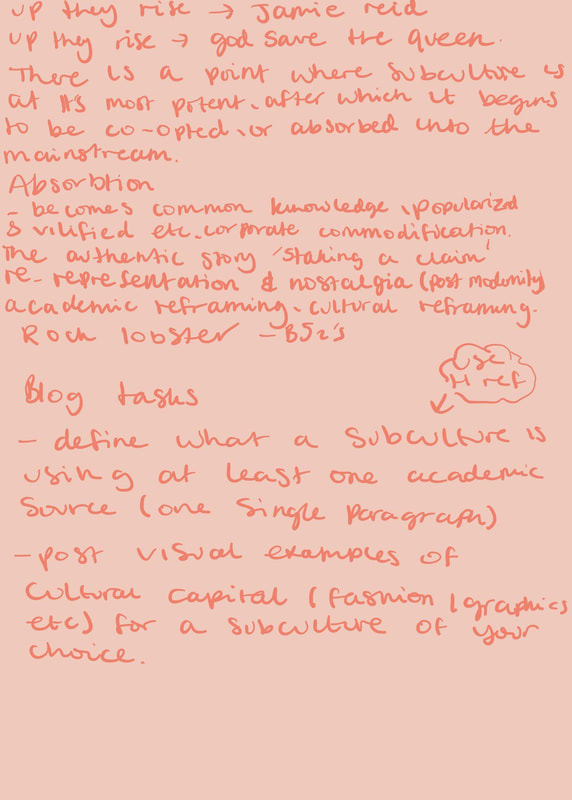 up they rise → Jamie reid
up they rise → god save the queen.
There is a point where subculture is
at its most potent, after which it begins
to be co-opted, or absorbed into the
mainstream.
Absorbtion
- becomes common knowledge, popularized
& vilified etc. corporate commodification.
The authentic story 'staking a claim'
re-representation & nostalgia (post modernity)
academic reframing. cultural reframing.
Rock lobster - B52's
use
H ref
Blog tasks
- define what a subculture is
using at least one academic
source (one single paragraph)
- post visual examples of
cultural capital (fashion / graphics
etc) for a subculture of your
choice.